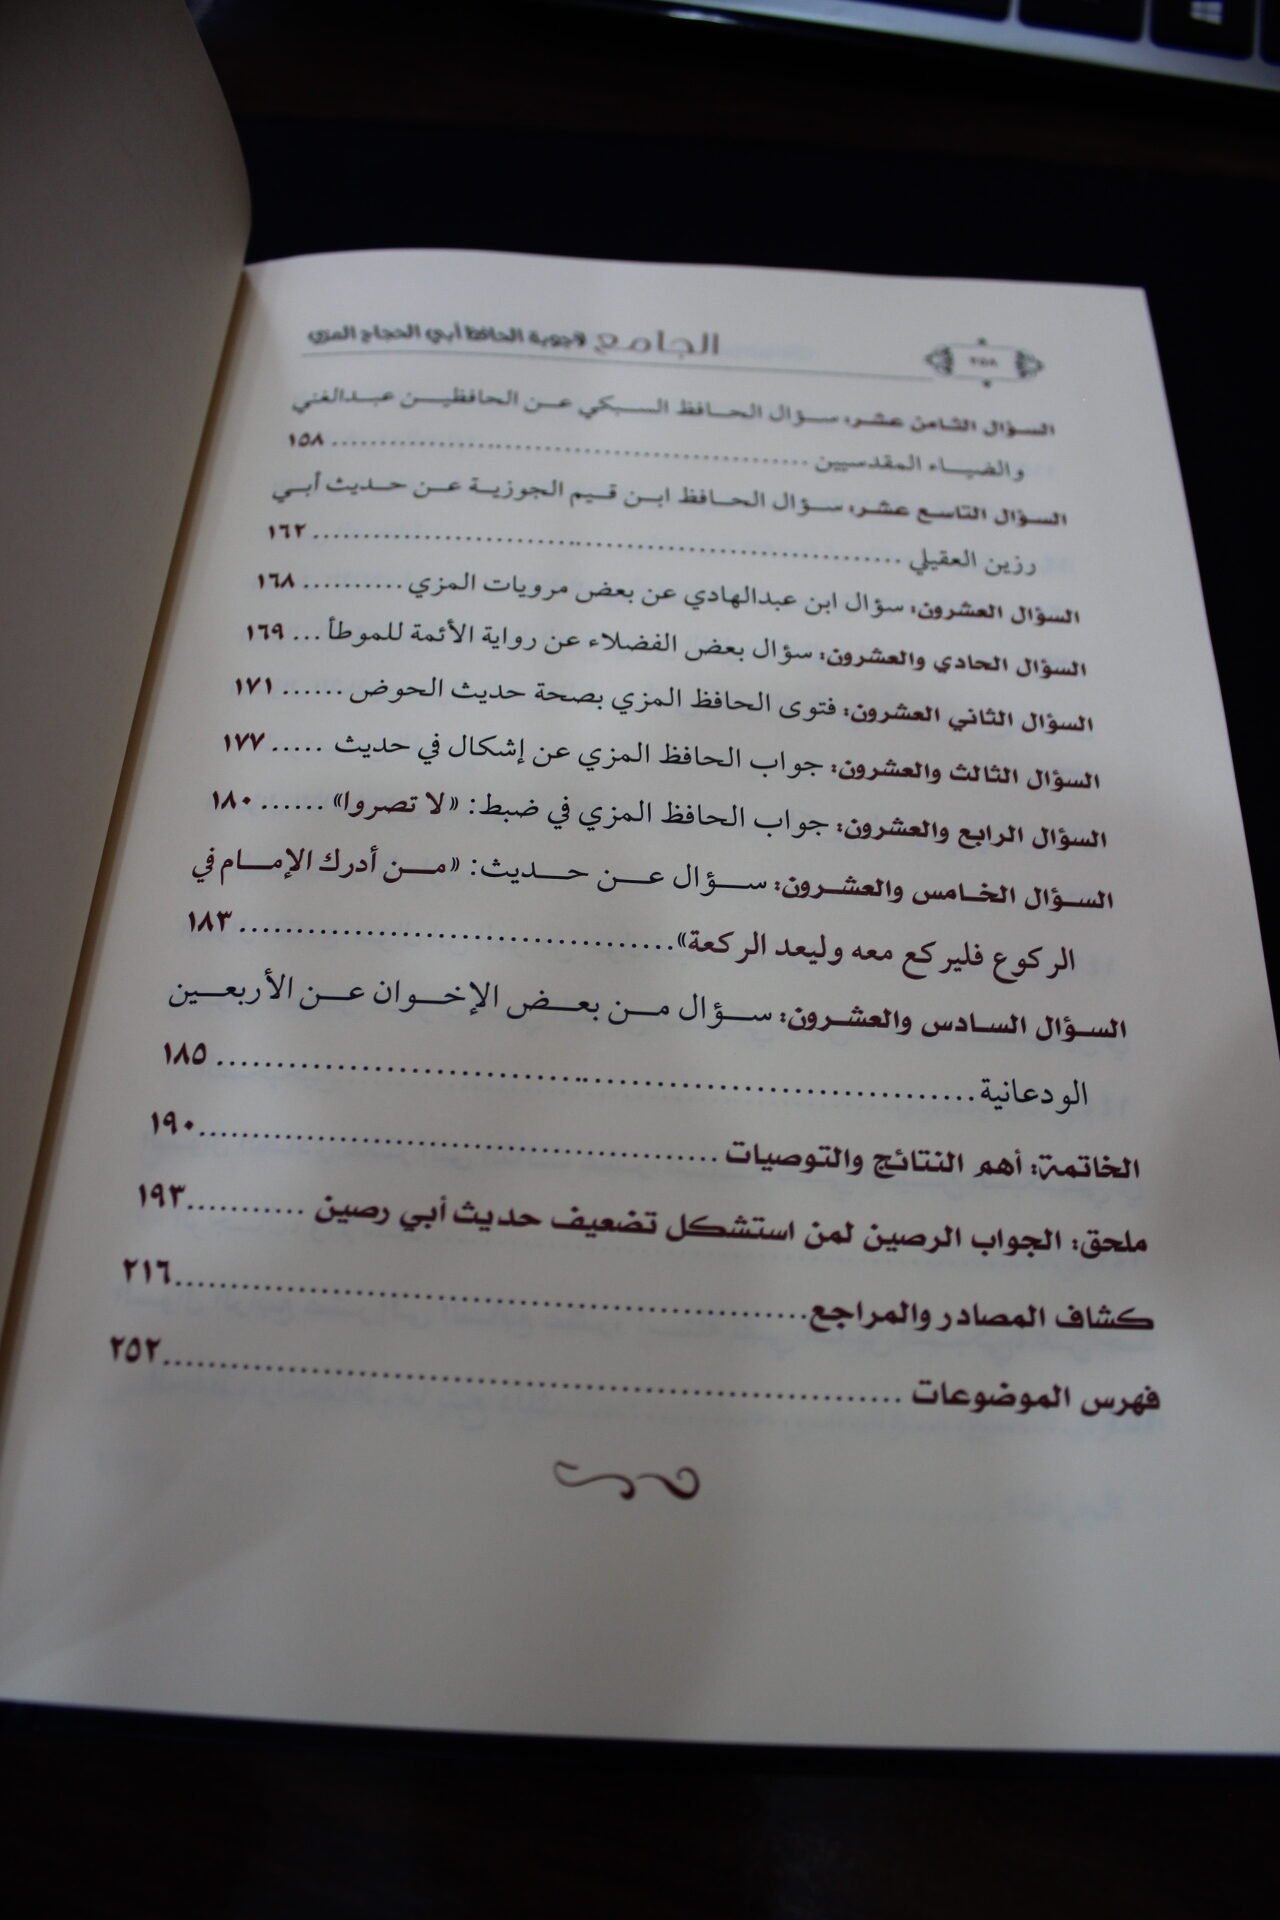 ٢٥٨
الجامع لأجوبة الحافظ أبي الحجاج المزي
السؤال الثامن عشر: سؤال الحافظ السبكي عن الحافظين عبدالغني
والضياء المقدسيين ........ ١٥٨
السؤال التاسع عشر: سؤال الحافظ ابن قيم الجوزية عن حديث أبي
رزين العقيلي ........ ١٦٢
السؤال العشرون: سؤال ابن عبدالهادي عن بعض مرويات المزي ........ ١٦٨
السؤال الحادي والعشرون: سؤال بعض الفضلاء عن رواية الأئمة للموطأ ... ١٦٩
السؤال الثاني العشرون: فتوى الحافظ المزي بصحة حديث الحوض ...... ١٧١
السؤال الثالث والعشرون: جواب الحافظ المزي عن إشكال في حديث ..... ١٧٧
السؤال الرابع والعشرون: جواب الحافظ المزي في ضبط: «لا تصروا» ...... ١٨٠
السؤال الخامس والعشرون: سؤال عن حديث: «من أدرك الإمام في
الركوع فليركع معه وليعد الركعة» ........ ١٨٣
السؤال السادس والعشرون: سؤال من بعض الإخوان عن الأربعين
الودعانية ........ ١٨٥
الخاتمة: أهم النتائج والتوصيات ........ ١٩٠
ملحق: الجواب الرصين لمن استشكل تضعيف حديث أبي رصين ........ ١٩٣
كشاف المصادر والمراجع ........ ٢١٦
فهرس الموضوعات ........ ٢٥٢